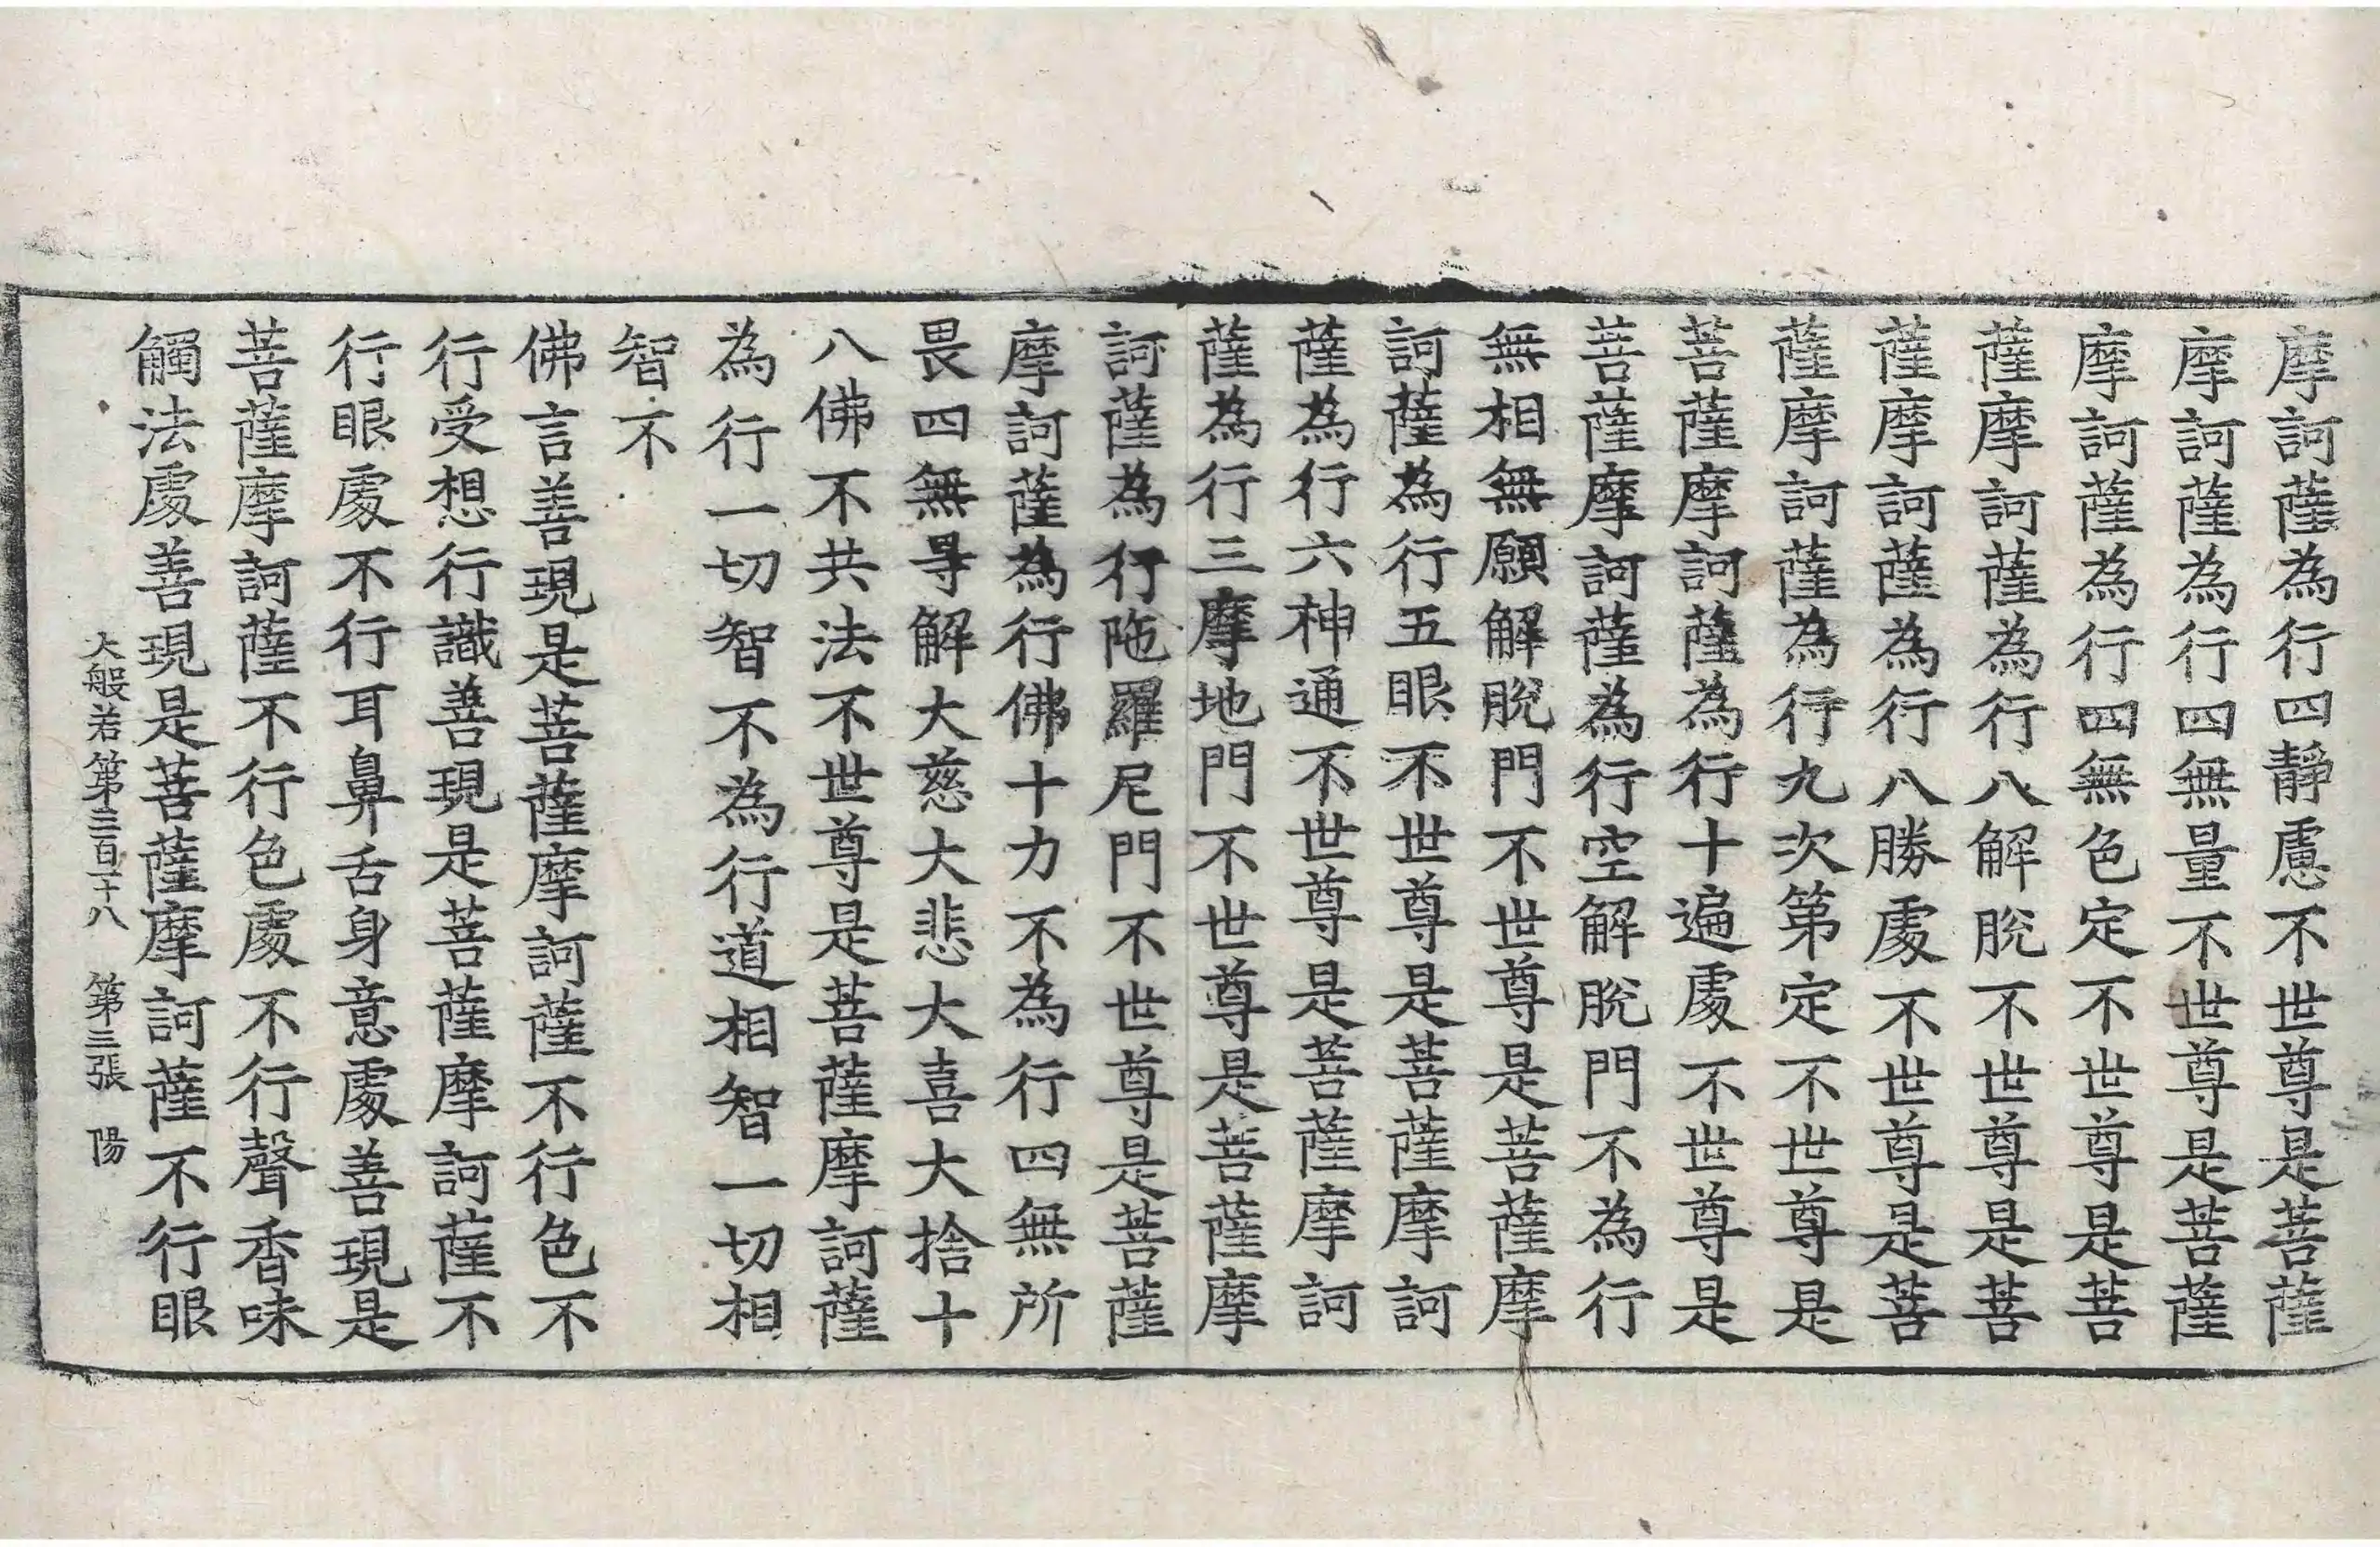 摩訶薩為行四靜慮不世尊是菩薩
摩訶薩為行四無量不世尊是菩薩
摩訶薩為行四無色定不世尊是菩
薩摩訶薩為行八解脫不世尊是菩
薩摩訶薩為行八勝處不世尊是菩
薩摩訶薩為行九次第定不世尊是
菩薩摩訶薩為行十遍處不世尊是
菩薩摩訶薩為行空解脫門不為行
無相無願解脫門不世尊是菩薩摩
訶薩為行五眼不世尊是菩薩摩訶
薩為行六神通不世尊是菩薩摩訶
薩為行三摩地門不世尊是菩薩摩
訶薩為行陁羅尼門不世尊是菩薩
摩訶薩為行佛十力不為行四無所
畏四無㝵解大慈大悲大喜大捨十
八佛不共法不世尊是菩薩摩訶薩
為行一切智不為行道相智一切相
智不
佛言善現是菩薩摩訶薩不行色不
行受想行識善現是菩薩摩訶薩不
行眼處不行耳鼻舌身意處善現是
菩薩摩訶薩不行色處不行聲香味
觸法處善現是菩薩摩訶薩不行眼
大般若第三百二十八 第三張 陽